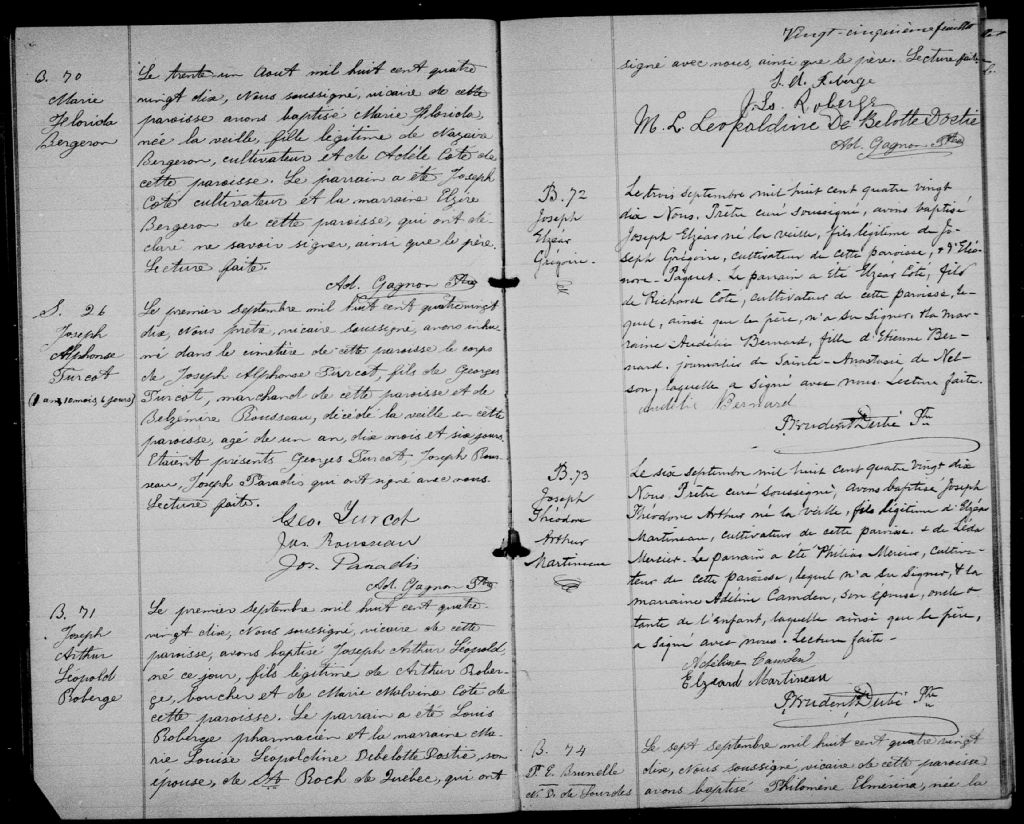 B. 70
Marie
Florida
Bergeron
Le trente un Aout mil huit cent quatre
vingt dix, Nous soussigné, vicaire de cette
paroisse avons baptisé Marie Florida,
née la veille, fille légitime de Nazaire
Bergeron, cultivateur et de Adèle Cote de
cette paroisse. Le parrain a été Joseph
Coté cultivateur et la marraine Elzire
Bergeron de cette paroisse, qui ont dé-
claré ne savoir signer, ainsi que le père.
Lecture faite.
Ad. Gagnon Ptre
S. 26
Joseph
Alphonse
Turcot
(1 an, 10 mois, 6 jours)
Le premier septembre mil huit cent quatrevingt
dix, Nous prêtre, vicaire soussigné, avons inhu-
mé dans le cimetière de cette paroisse le corps
de Joseph Alphonse Turcot, fils de Georges
Turcot, marchand de cette paroisse et de
Belzémire Rousseau, décédé la veille en cette
paroisse, agé de un an, dix mois et six jours.
Etaient présents Georges Turcot, Joseph Rous-
seau, Joseph Paradis qui ont signé avec nous.
Lecture faite.
Geo. Turcot
Jos. Rousseau
Jos. Paradis
Ad. Gagnon Ptre
B. 71
Joseph
Arthur
Léopold
Roberge
Le premier septembre mil huit cent quatre-
vingt dix, Nous soussigné, vicaire de cette
paroisse, avons baptisé Joseph Arthur Léopold,
né ce jour, fils légitime de Arthur Rober-
ge, boucher et de Marie Malvina Cote de
cette paroisse. Le parrain a été Louis
Roberge pharmacien et la marraine Ma-
rie Louise Léopoldine Debelotte Dostie, son
épouse, de St Roch de Québec, qui ont
Vingt-cinquième feuillet
signé avec nous, ainsi que le père. Lecture faite.
J. A. Roberge
J. Ls. Roberge
M. L. Leopoldine De Belotte Dostie
Ad. Gagnon Ptre
B. 72
Joseph
Elzéar
Grégoire.
Le trois septembre mil huit cent quatre vingt
dix Nous. Prêtre curé soussigné, avons baptisé
Joseph Elzéar né la veille, fils légitime de Jo-
seph Grégoire, cultivateur de cette paroisse, & d'Eléo-
nore Pâquet. Le parrain a été Elzéar Côté, fils
de Richard Côté, cultivateur de cette paroisse, le-
quel, ainsi que le père, n'a su signer, & la mar-
raine Audélie Bernard, fille d'Etienne Ber-
nard. journalier de Sainte-Anastasie de Nel-
son, laquelle a signé avec nous. Lecture faite.
Audélie Bernard
Prudent Dubé Ptre
B. 73
Joseph
Théodore
Arthur
Martineau
Le six septembre mil huit cent quatre vingt dix
Nous. Prêtre curé soussigné, avons baptisé Joseph
Théodore Arthur né la veille, fils légitime d'Elzéar
Martineau, cultivateur de cette paroisse. & de Léda
Mercier. Le parrain a été Philias Mercier, cultiva-
teur de cette paroisse, lequel n'a su signer, & la
marraine Adéline Camden, son épouse, oncle &
tante de l'enfant, laquelle ainsi que le père,
a signé avec nous. Lecture faite.
Adéline Camden
Elzéard Martineau
Prudent Dubé Ptre
B. 74
P. E. Brunelle
N. D. de Lourdes
Le sept septembre mil huit cent quatre vingt
dix, Nous soussigné, vicaire de cette paroisse
avons baptisé Philomène Elmérina, née la